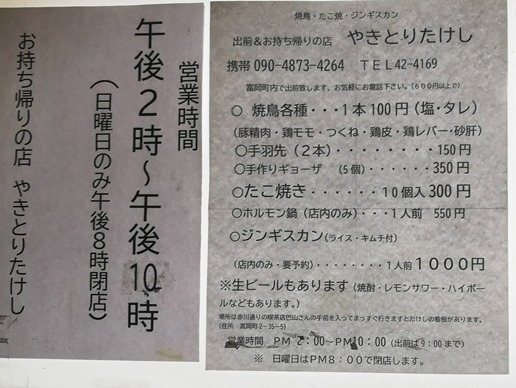 営業時間
午後2時～午後10時
(日曜日のみ午後8時閉店)
お持ち帰りの店 やきとりたけし
焼鳥・たこ焼・ジンギスカン
出前＆お持ち帰りの店 やきとりたけし
携帯 090-4873-4264 TEL42-4169
富岡町内で出前致します、お気軽にお電話下さい。(600円以上で)
○ 焼鳥各種・・・1本100円(塩・タレ)
(豚精肉・鶏モモ・つくね・鶏皮・鶏レバー・砂肝)
○手羽先(2本)・・・・・・・・150円
○手作りギョーザ (5個)・・・・・・350円
○たこ焼き・・・・・10個入300円
○ホルモン鍋(店内のみ)・・・・1人前 550円
○ジンギスカン(ライス・キムチ付)
(店内のみ・要予約)・・・・・・1人前1000円
※生ビールもあります(焼酎・レモンサワー・ハイボールなどもあります。)
場所は赤川通りの喫茶店巴山さんの手前を入ってまっすぐ行きますとたけしの看板があります。
(住所 富岡町2-35-5)
営業時間 PM 2:00～PM10:00 (出前は9:00まで)
※ 日曜日はPM8:00で閉店します。